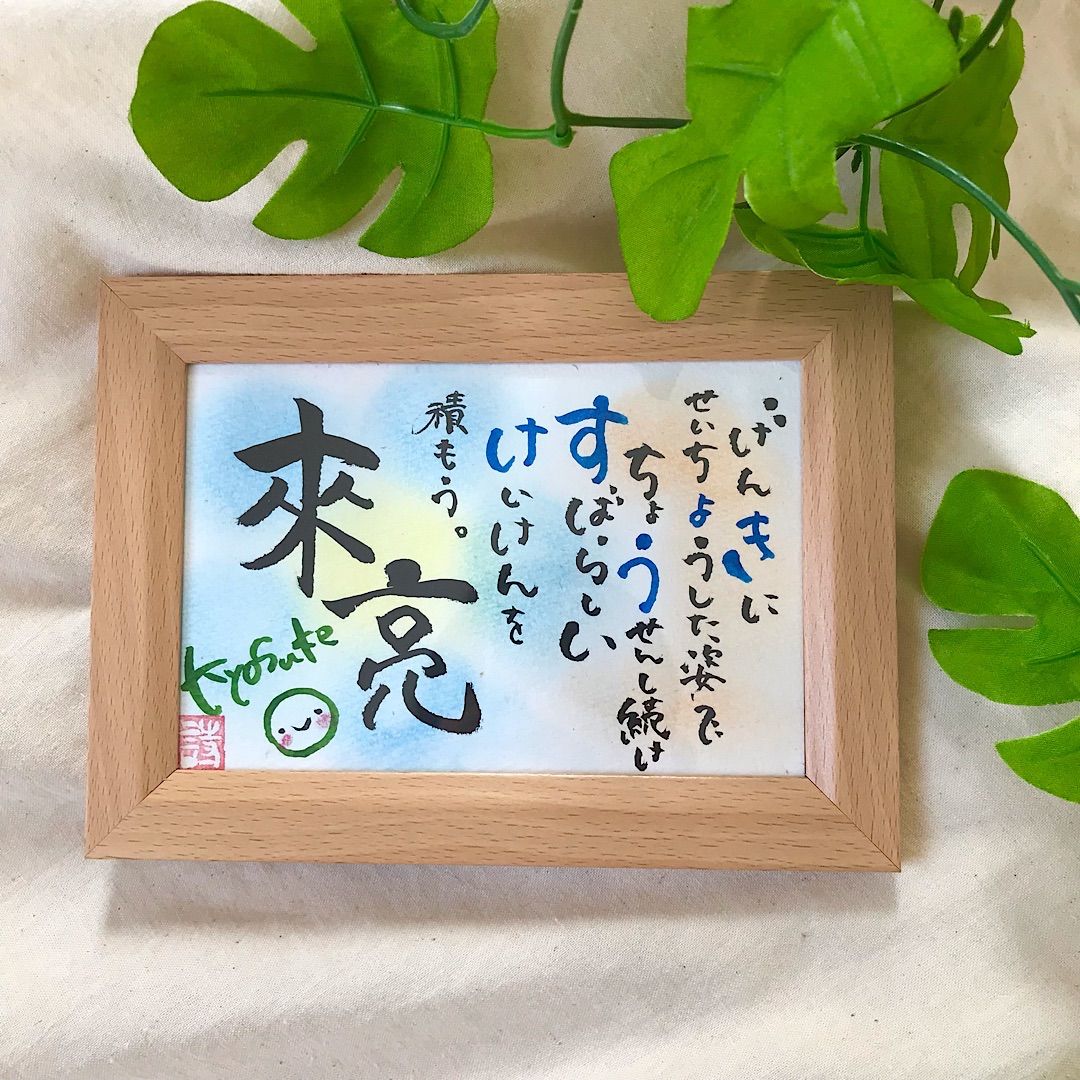 げんきに
せいちょうした姿で
ちょうせんし続け
すばらしい
けいけんを
積もう。
來亮
Kyosuke
詩